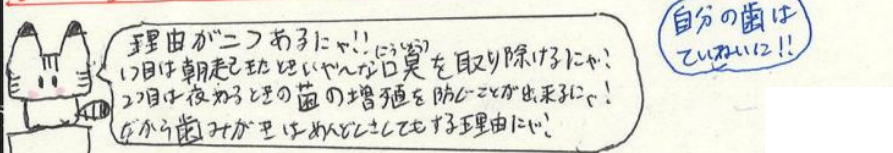 理由が二つあるにゃ!!
こうしゅう
1つ目は朝起きたときいやんな口臭を取り除けるにゃ!
2つ目は夜ねるときの菌の増殖を防ぐことが出来るにゃ!
だから歯みがきはめんどくさくてもする理由にゃ!
自分の歯は
ていねいに!!